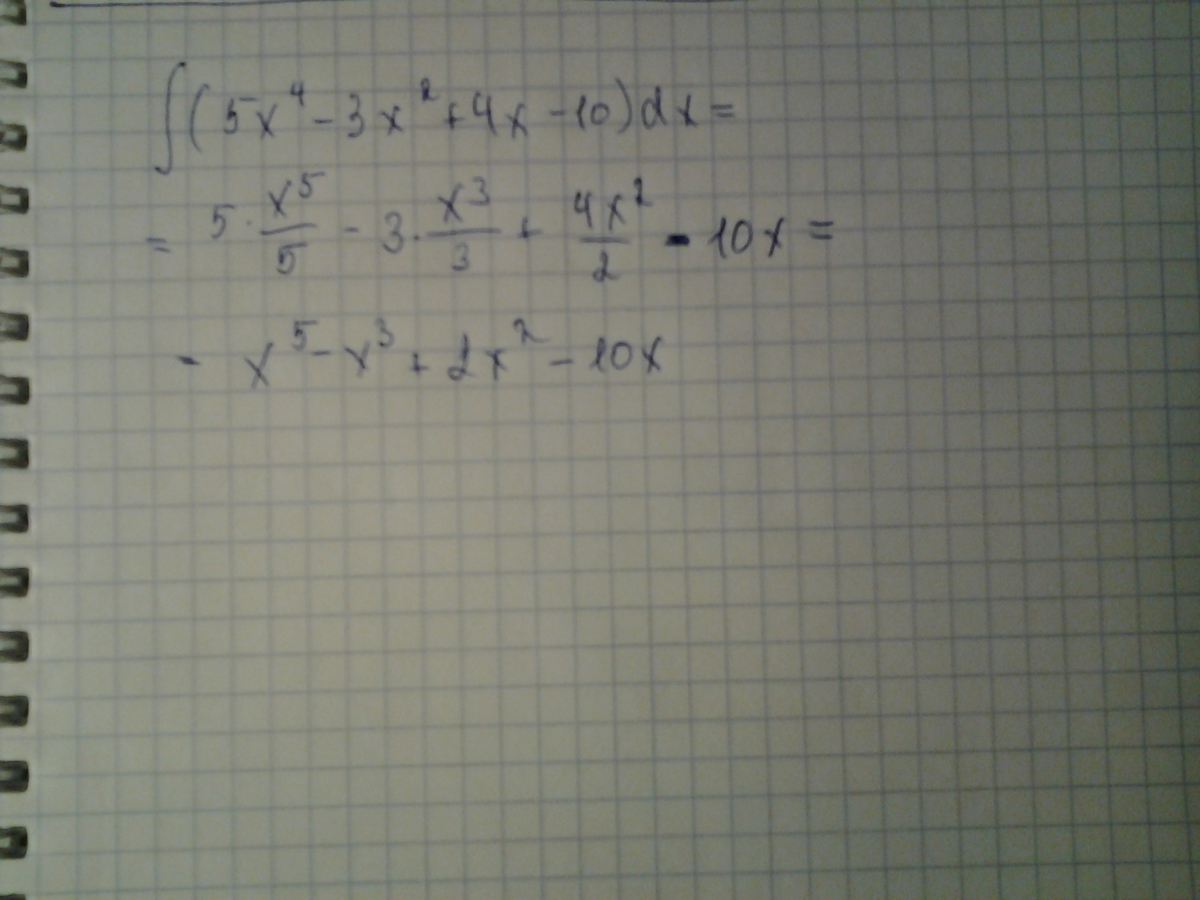 ∫(5x⁴-3x²+4x-10)dx=
= 5·x⁵/5 - 3·x³/3 + 4x²/2 - 10x =
- x⁵-x³+2x²-10x